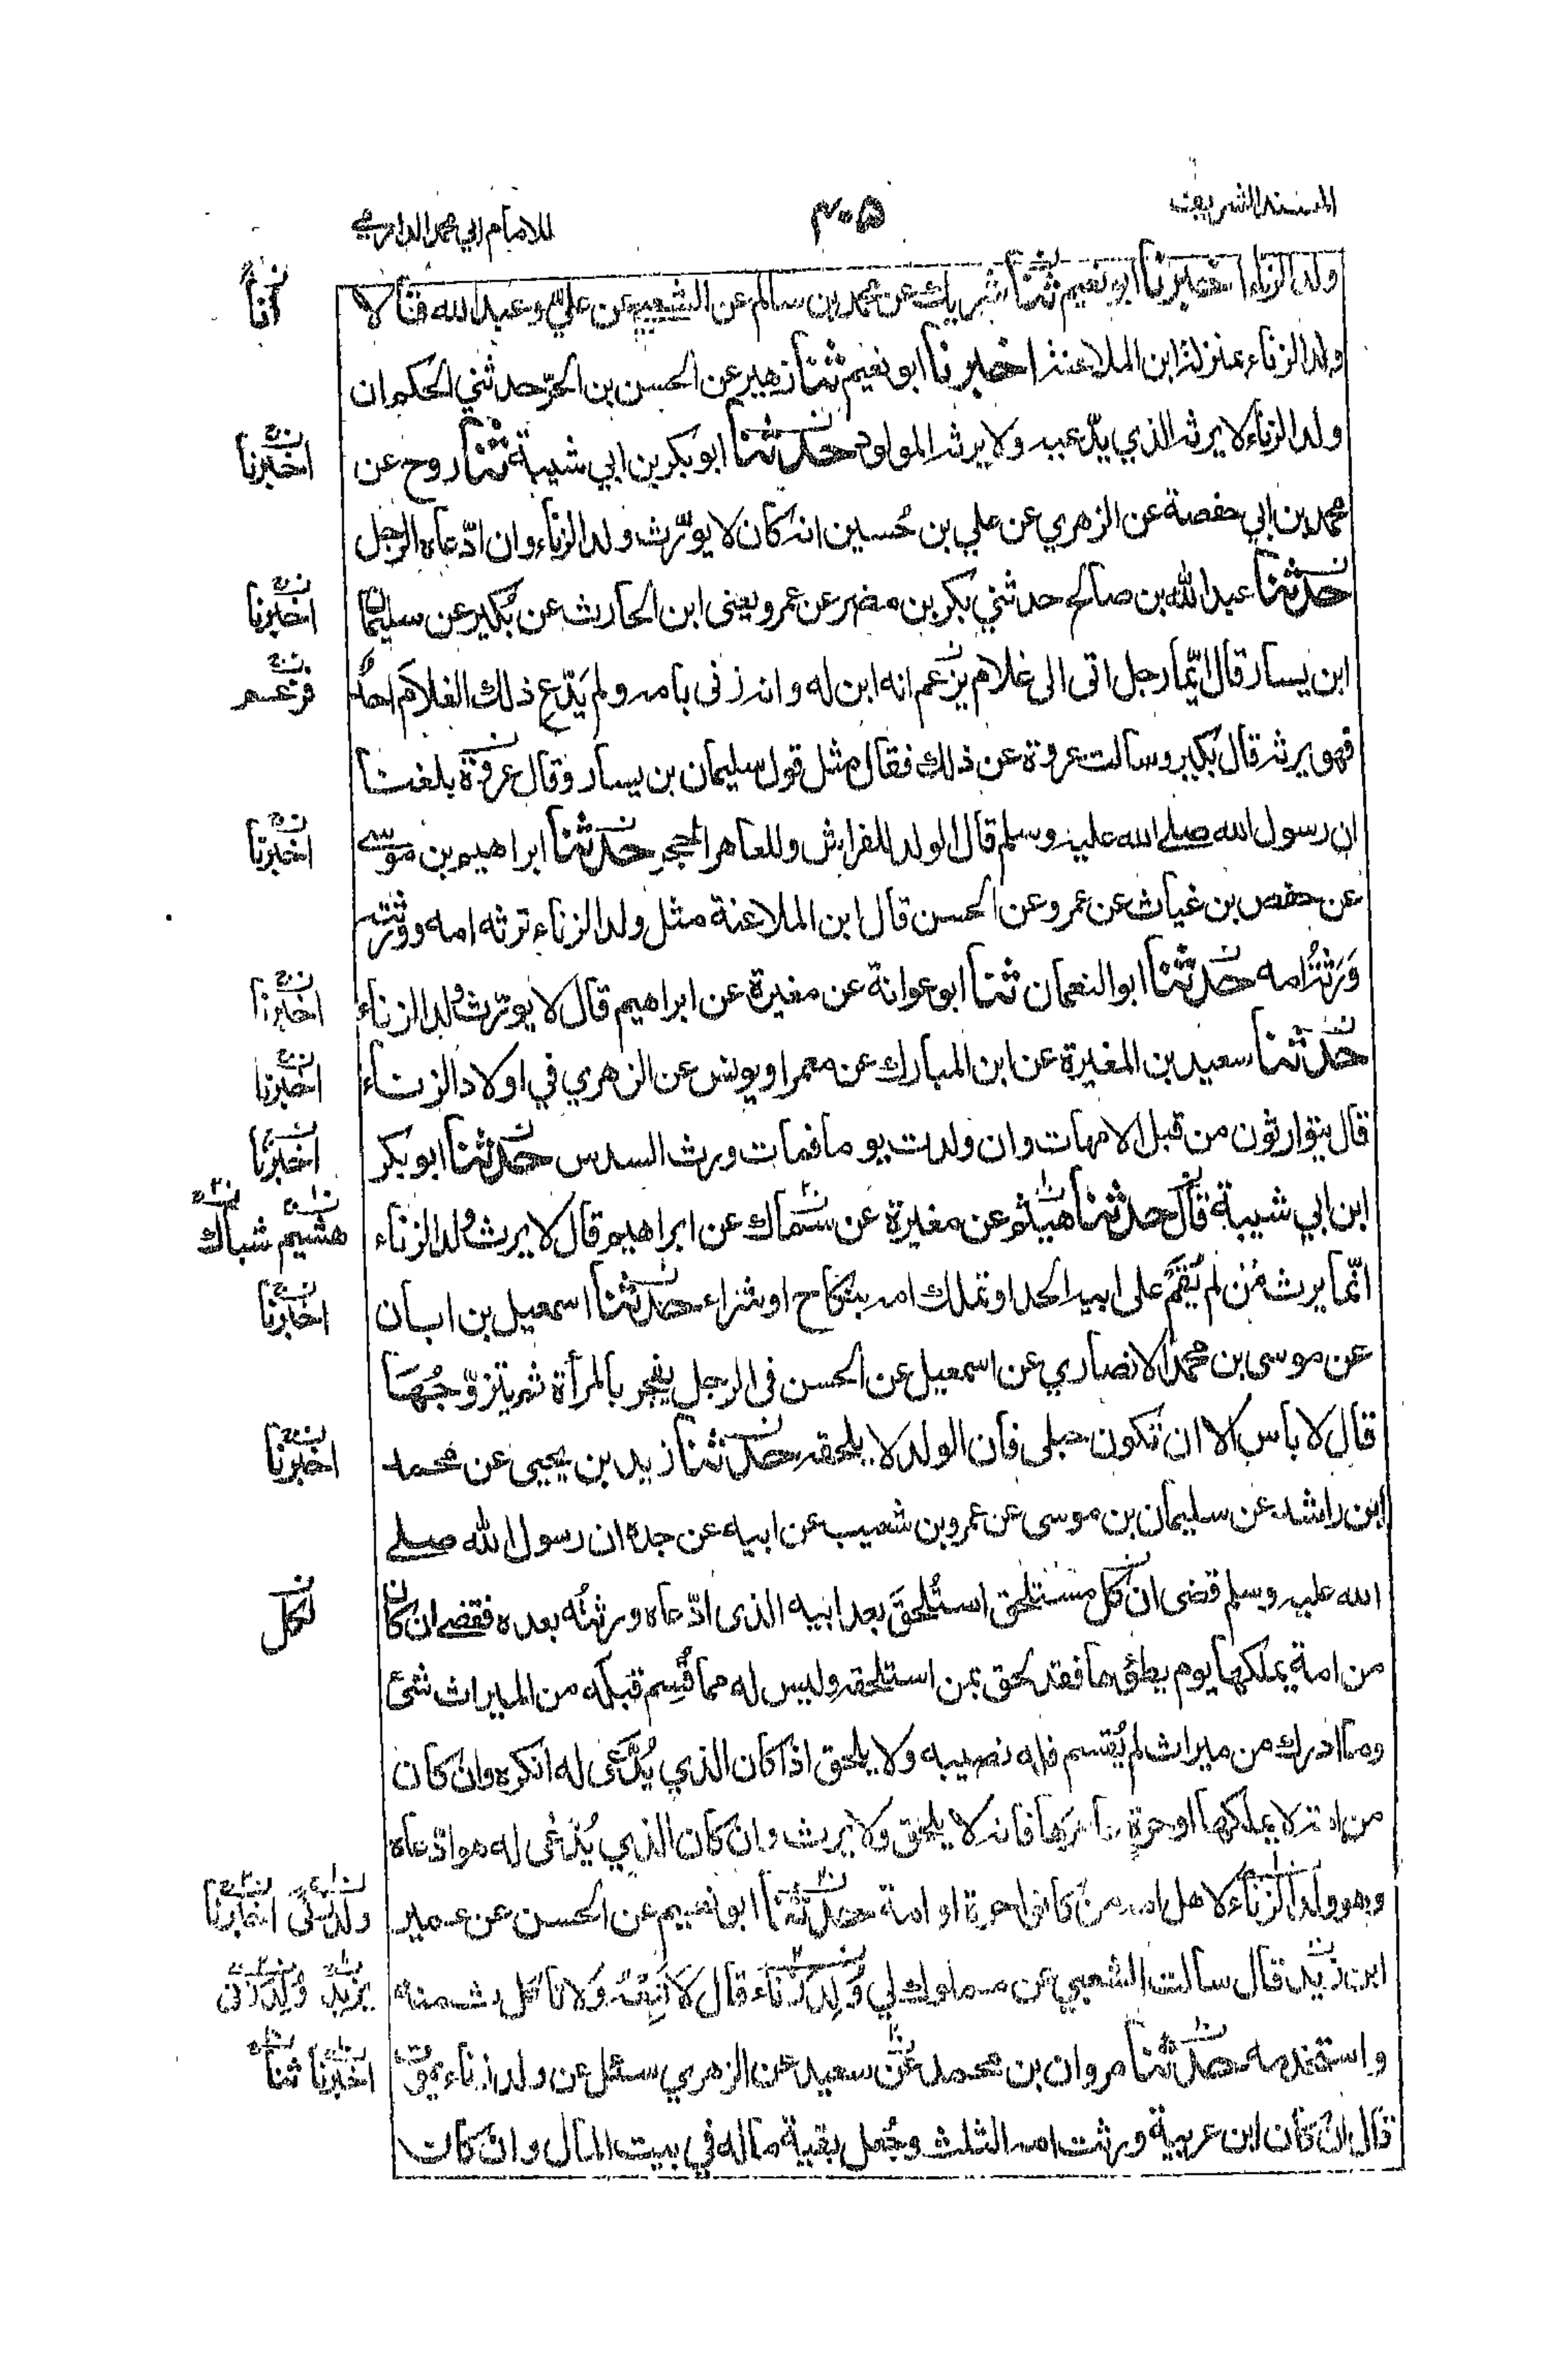 المسند الشريف ٣٠٥ للامام ابي محمد الدارمي
ولد الزناء اخبرنا ابو نعيم ثنا شريك عن محمد بن سالم عن الشعبي عن علي وعبد الله قالا
انا
ولد الزناء بمنزلة ابن الملاعنة اخبرنا ابو نعيم ثنا زهير عن الحسن بن الحرّ حدثني الحكم ان
ولد الزناء لا يرثه الذي يدّعيه ولا يرثه المولود حدثنا ابو بكر بن ابي شيبة ثنا روح عن
اخبرنا
محمد بن ابي حفصة عن الزهري عن علي بن حُسين انه كان لا يورّث ولد الزناء وان ادّعاه الرجل
حدثنا عبد الله بن صالح حدثني بكر بن مضر عن عمرو يعنى ابن الحارث عن بُكير عن سليمان
اخبرنا
ابن يسار قال ايّما رجل اتى الى غلام يزعم انه ابن له وانه زنى بامه ولم يَدّعِ ذلك الغلامَ احدٌ
فزعم
فهو يرثه قال بكير وسالت عروة عن ذلك فقال مثل قول سليمان بن يسار وقال عروة بلغنا
ان رسول الله صلى الله عليه وسلم قال الولد للفراش وللعاهر الحجر حدثنا ابراهيم بن موسى
اخبرنا
عن حفص بن غياث عن عمرو عن الحسن قال ابن الملاعنة مثل ولد الزناء ترثه امه وورثته
وَرَثَةُ امه حدثنا ابو النعمان ثنا ابو عوانة عن مغيرة عن ابراهيم قال لا يورّث ولد الزناء
اخبرنا
حدثنا سعيد بن المغيرة عن ابن المبارك عن معمر او يونس عن الزهري في اولاد الزناء
اخبرنا
قال يتوارثون من قبل الامهات وان ولدت يوما فمات ورث السدس حدثنا ابو بكر
اخبرنا
ابن ابي شيبة قال حدثنا هيثم عن مغيرة عن سماك عن ابراهيم قال لا يرث ولد الزناء
هشيم شباك
انّما يرث مَن لم يُقَمْ على ابيه الحد او تملك امه بنكاح او شراء حدثنا اسمعيل بن ابان
اخبرنا
عن موسى بن محمد الانصاري عن اسمعيل عن الحسن في الرجل يفجر بالمرأة ثم يتزوّجُهَا
قال لا بأس الا ان تكون حبلى فان الولد لا يلحقه حدثنا زيد بن يحيى عن محمد
اخبرنا
ابن راشد عن سليمان بن موسى عن عمرو بن شعيب عن ابيه عن جده ان رسول الله صلى
الله عليه وسلم قضى ان كل مستلحق استُلحقَ بعد ابيه الذى ادّعاه ورثتُه بعده فقضى ان كان
لكل
من امة يملكها يوم يطؤها فقد لحق بمن استلحقه وليس له مما قُسِم قبله من الميراث شئ
وما ادرك من ميراث لم يُقسم فله نصيبه ولا يلحق اذا كان الذي يُدّعى له انكره وان كان
من امة لا يملكها او حرةٍ عاهرها فانه لا يلحق ولا يرث وان كان الذي يُدّعى له هو ادّعاه
وهو ولد الزناء لاهل امه من كانوا حرة او امة حدثنا ابو نعيم عن الحسن عن عمير
ولد زنى اخبرنا
ابن زيد قال سالت الشعبي عن مملوك لي وُلِدَ زناء قال لا تَبِعْهُ ولا تاكل ثمنه
يزيد وُلِد زنى
واستخدمه حدثنا مروان بن محمد عن سعيد عن الزهري سئل عن ولد زناء يموت
اخبرنا ثنا
قال ان كان ابن عربية ورثت امه الثلث وجُعل بقية ماله في بيت المال وان كان